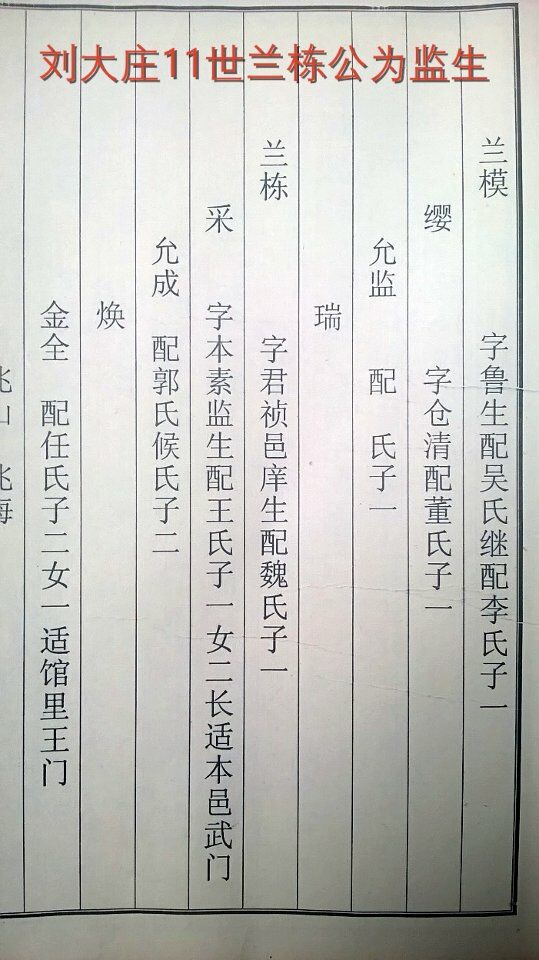 刘大庄11世兰栋公为监生
兰模 字鲁生配吴氏继配李氏子一
缨 字仓清配董氏子一
允监 配 氏子一
瑞
兰栋 字君祯邑庠生配魏氏子一
采 字本素监生配王氏子一女二长适本邑武门
允成 配郭氏候氏子二
焕
金全 配任氏子二女一适馆里王门
兆山 兆海